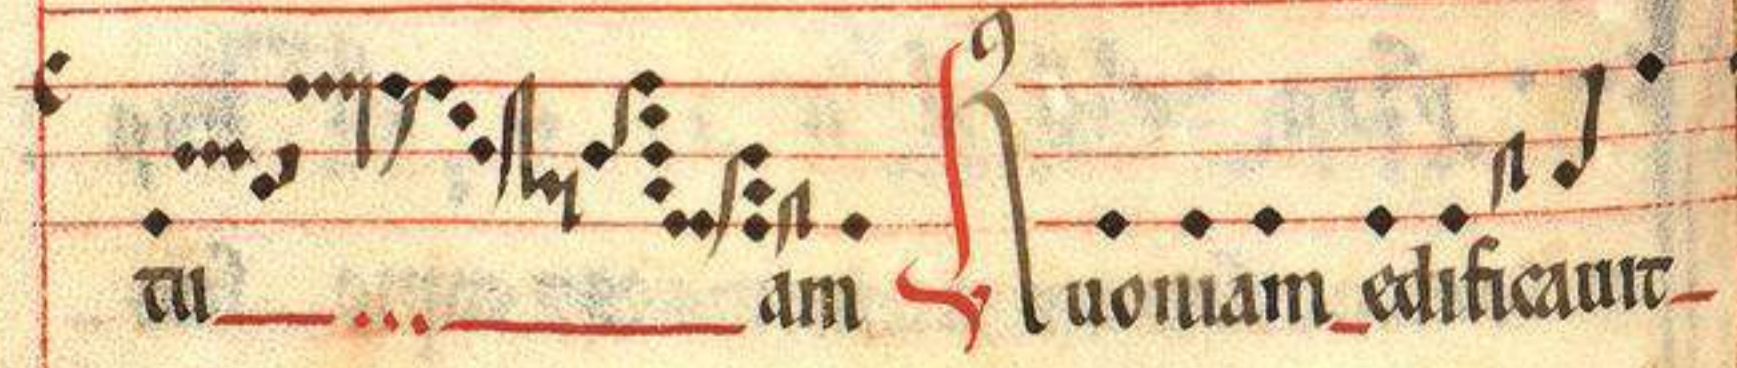 tu am Quoniam edificauit